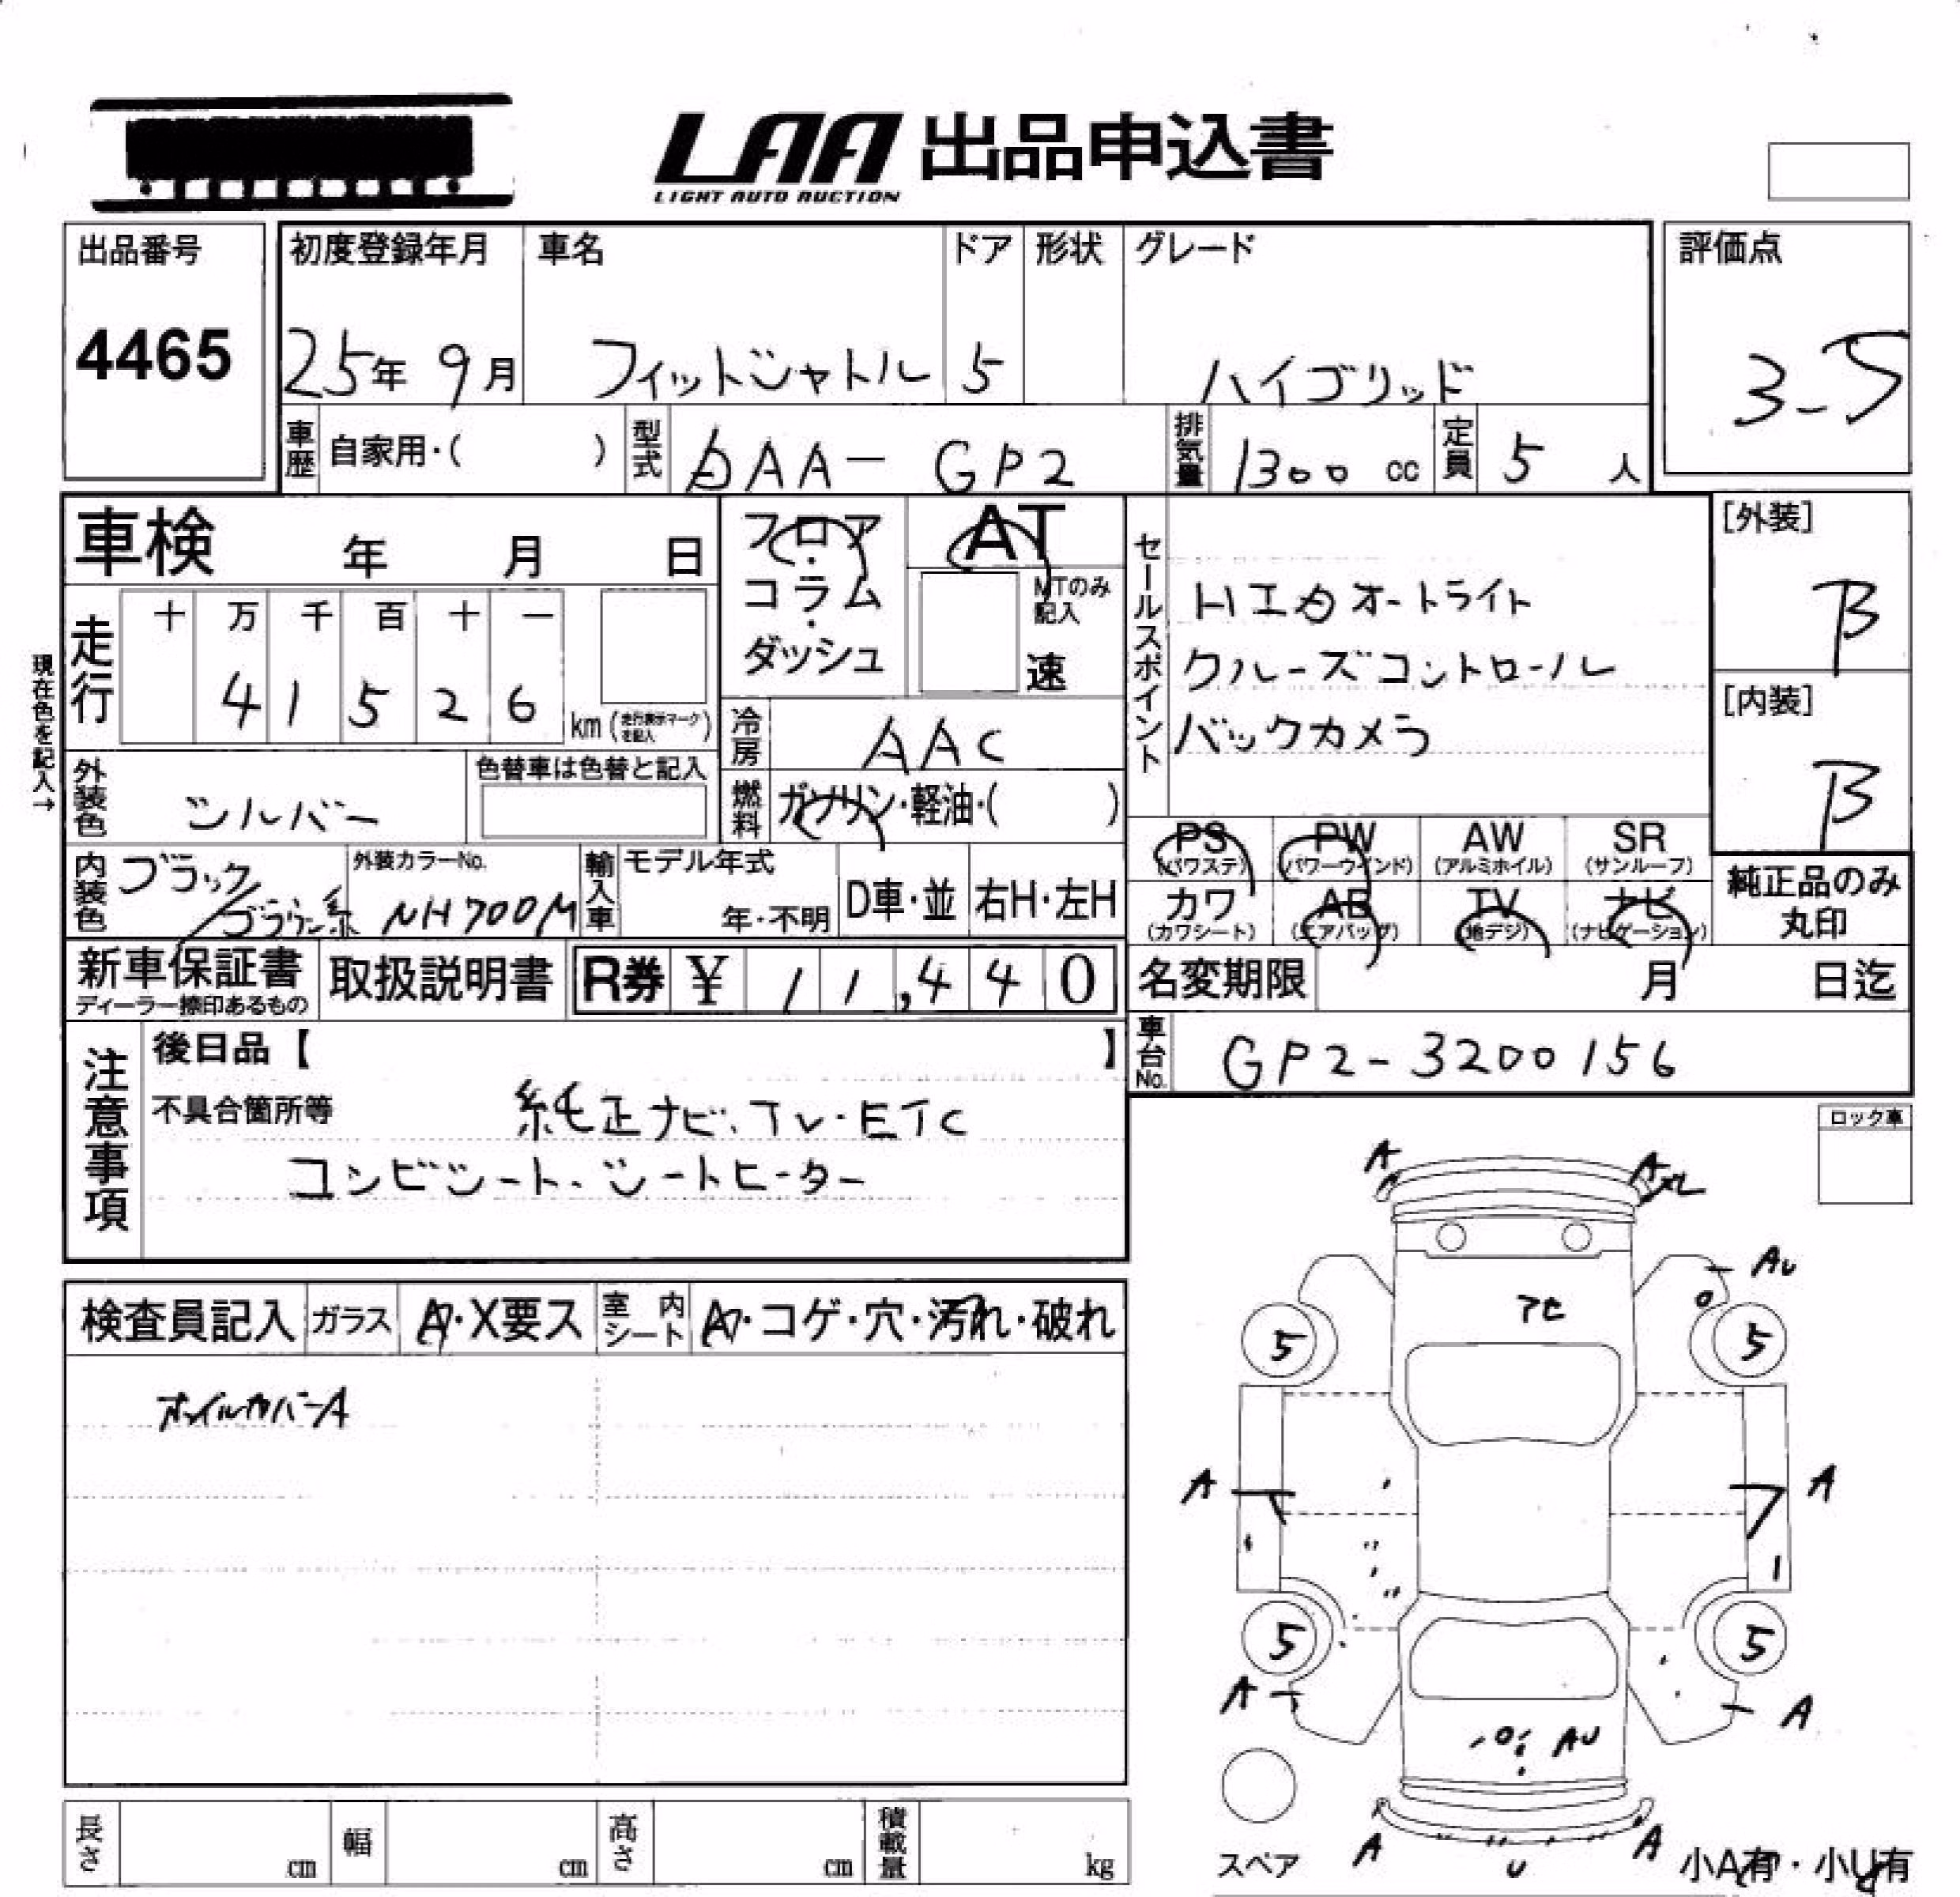 LAA 出品申込書
LIGHT AUTO AUCTION
出品番号
4465
初度登録年月 車名 ドア 形状 グレード
25年 9月 フィットシャトル 5 ハイブリッド
評価点
3-5
車歴 自家用・( ) 型式 DAA- GP2 排気量 1300 cc 定員 5 人
車検 年 月 日
フロア・コラム・ダッシュ
AT
MTのみ記入
速
セールスポイント
HIDオートライト
クルーズコントロール
バックカメラ
[外装]
B
[内装]
B
現在色を記入→
走行 十 万 千 百 十 一
4 1 5 2 6 km (走行表示マークを記入)
冷房 AAC
外装色 シルバー 色替車は色替と記入
燃料 ガソリン・軽油・( )
PS (パワステ) PW (パワーウインド) AW (アルミホイル) SR (サンルーフ)
カワ (カワシート) AB (エアバッグ) TV (地デジ) ナビ (ナビゲーション)
純正品のみ丸印
内装色 ブラック/ブラウン系 外装カラーNo. NH700M 輸入車 モデル年式 年・不明 D車・並 右H・左H
新車保証書 ディーラー捺印あるもの 取扱説明書 R券 ¥ 11,440
名変期限 月 日迄
車台No. GP2-3200156
注意事項
後日品【 】
不具合箇所等 純正ナビ・TV・ETC
コンビシート・シートヒーター
ロック車
検査員記入 ガラス A・X要ス 室内シート A・コゲ・穴・汚れ・破れ
ホイルカバーA
A A
AU
アセ
5 5
A A
5 5
A A
AU
A U A
スペア
小A有・小U有
長さ cm 幅 cm 高さ cm 積載量 kg